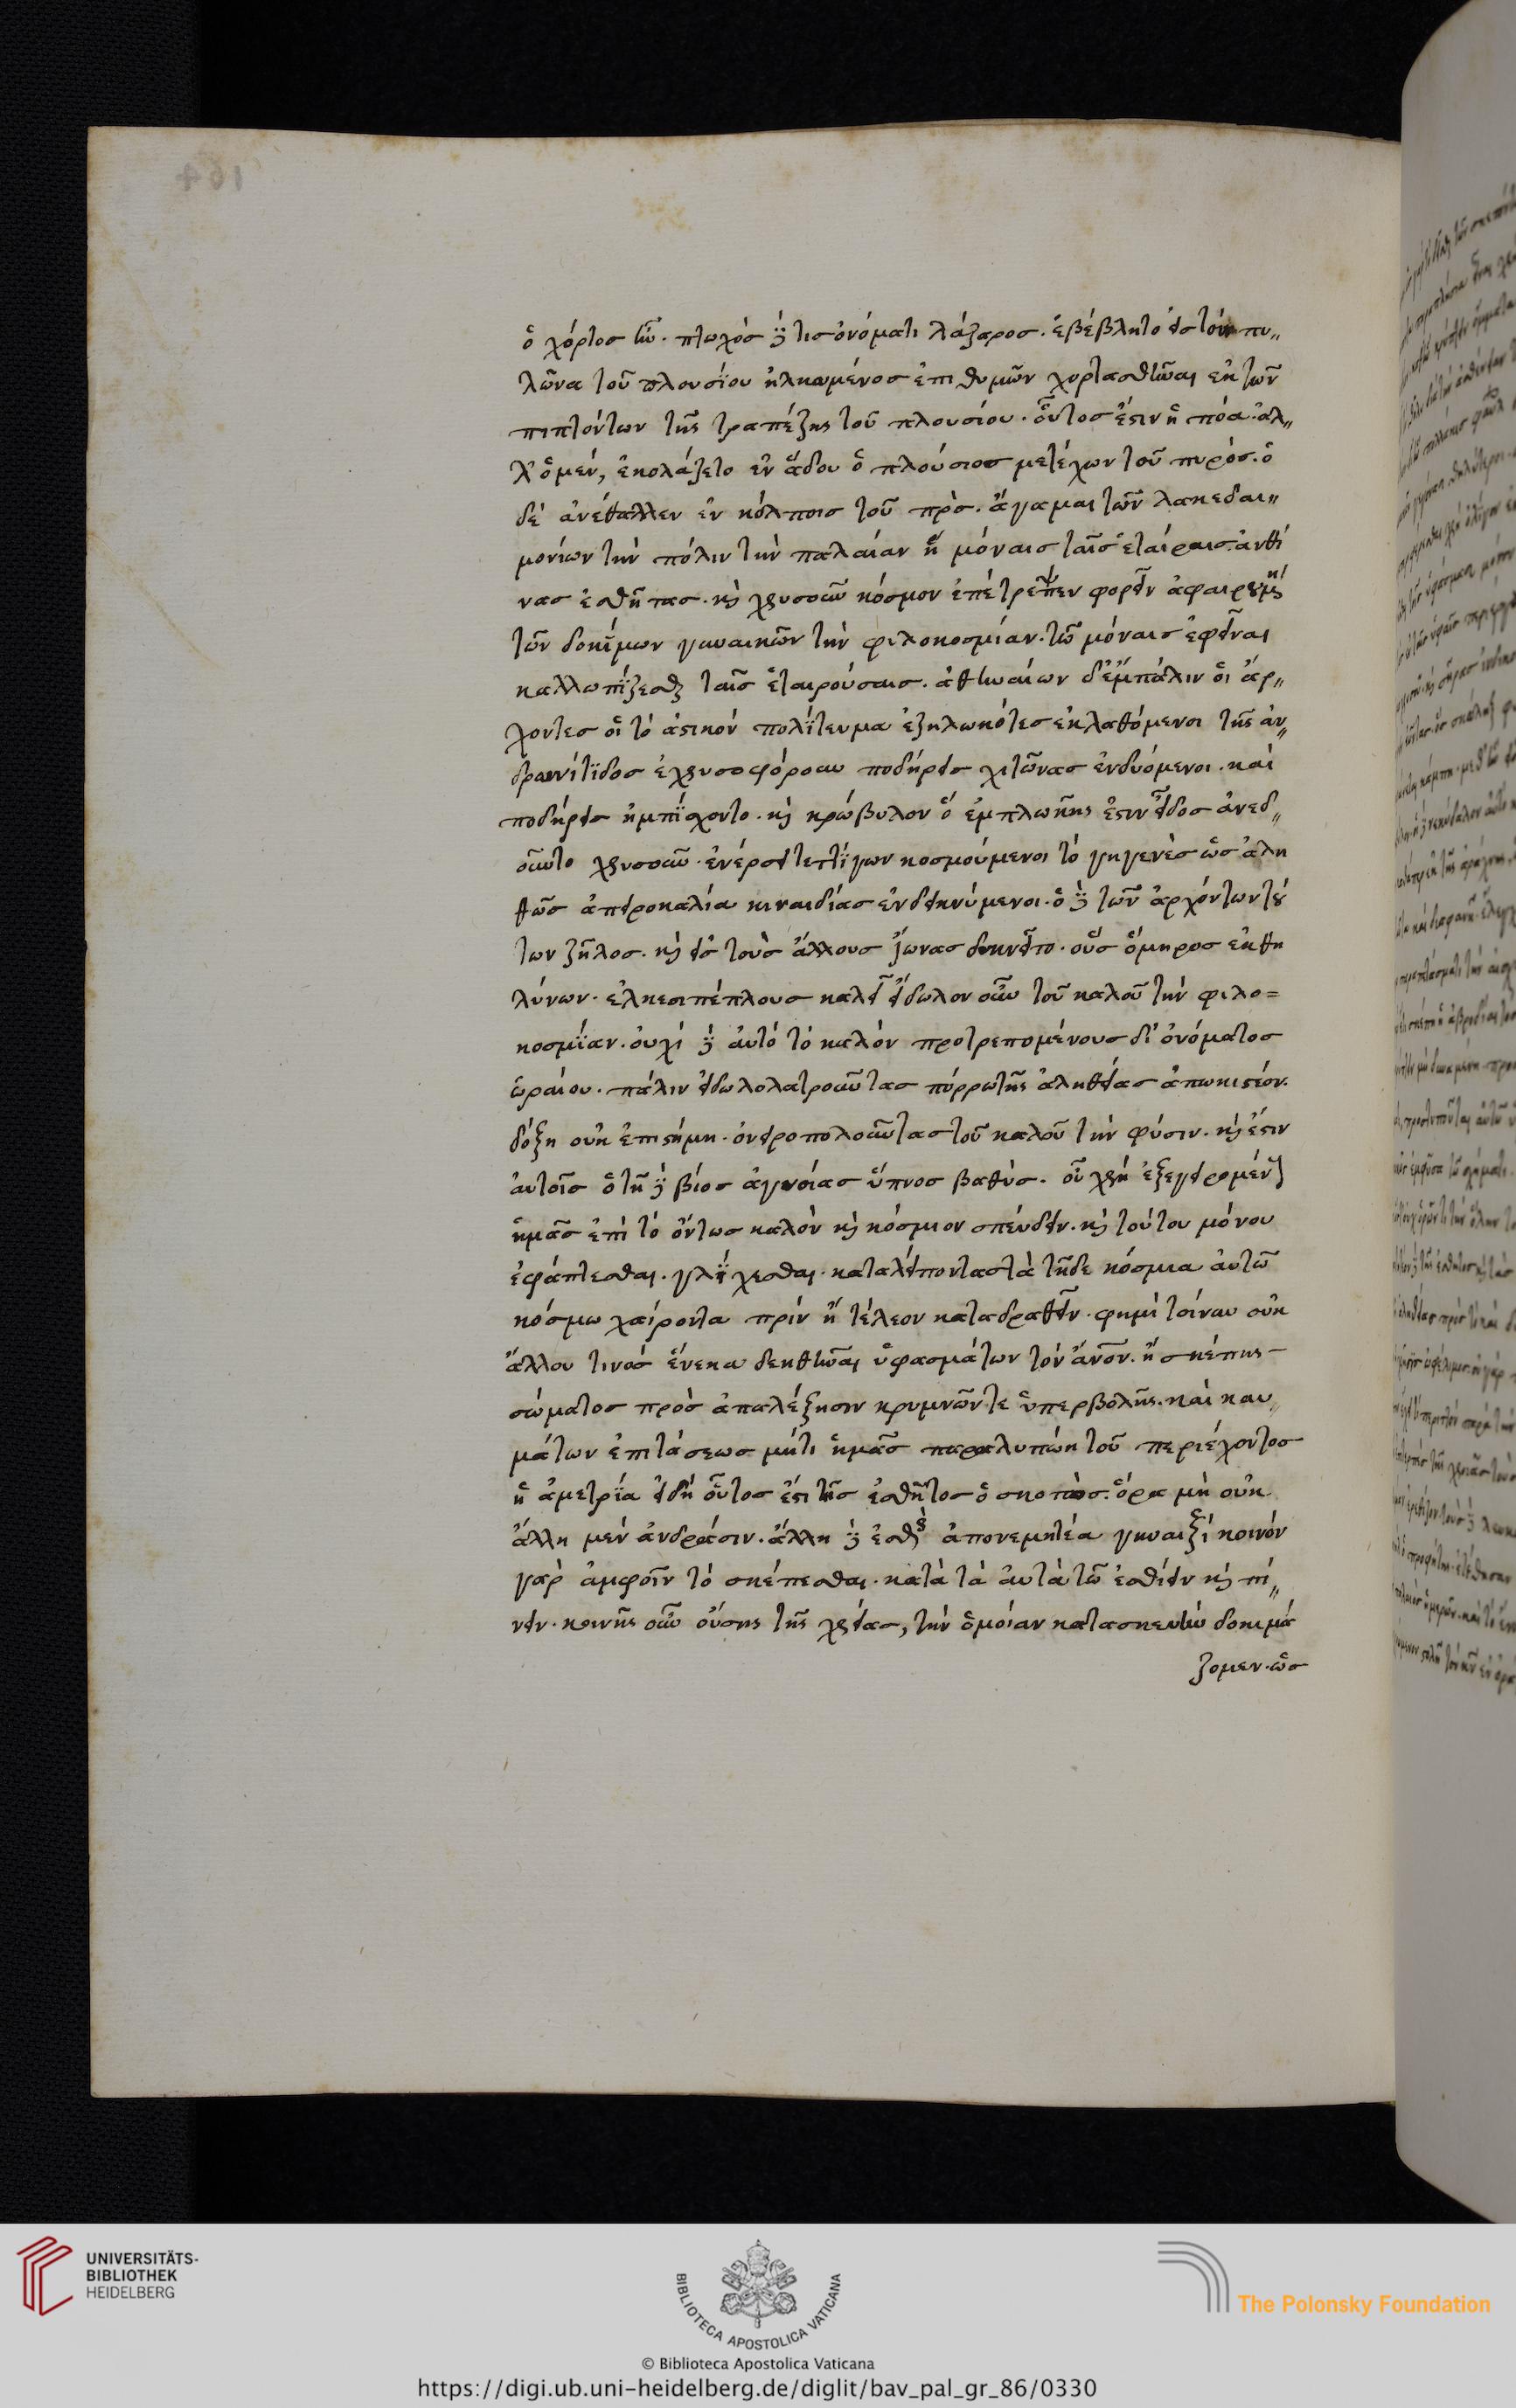 164
ὁ χόρτος ἦν. πτωχὸς δέ τις ὀνόματι λάζαρος. ἐβέβλητο εἰς τὸν πυ〃
λῶνα τοῦ πλουσΐου ἡλκωμένος ἐπιθυμῶν χορτασθῆναι ἐκ τῶν
πιπτόντων τῆς τραπέζης τοῦ πλουσίου. οὗτος ἐστιν ἡ πόα. ἀλ〃
λ' ὁ μὲν, ἐκολάζετο ἐν ἅδου ὁ πλούσιος μετέχων τοῦ πυρός. ὁ
δὲ ἀνέθαλλεν ἐν κόλποις τοῦ πρς. ἄγαμαι τῶν λακεδαι〃
μονίων τὴν πόλιν τὴν παλαίαν ἣ μόναις ταῖς ἑταίραις ἀνθί
νας ἐσθῆτας. καὶ χρυσοῦν κόσμον ἐπέτρεψεν φορεῖν ἀφαιρουμένη
τῶν δοκΐμων γυναικῶν τὴν φιλοκοσμίαν. τῶ μόναις ἐφεῖναι
καλλωπΐζεσθαι ταῖς ἑταιρούσαις. ἀθηναίων δ' ἔμπάλιν οἱ ἄρ〃
χοντες οἱ τὸ ἀστικὸν πολΐτευμα ἐζηλωκότες ἐκλαθόμενοι τῆς ἀν〃
δρωνίτΐδος ἐχρυσοφόρουν ποδήρεις χιτῶνας ἐνδυόμενοι. καὶ
ποδήρεις ἠμπΐσχοντο. καὶ κρώβυλον ὃ ἐμπλοκῆς ἐστιν εἶδος ἀνεδ〃
οῦντο χρυσοῦν. ἐνέρσει τεττΐγων κοσμούμενοι τὸ γηγενὲς ὡς ἀλη
θῶς ἀπειροκαλία κιναιδίας ἐνδεικνύμενοι. ὁ δὲ τῶν ἀρχόντων τού
των ζῆλος. καὶ εἰς τοὺς ἄλλους ἴωνας διικνεῖτο. οὓς ὅμηρος ἐκθη
λύνων. ἑλκεσιπέπλους καλεῖ εἴδωλον οὖν τοῦ καλοῦ τὴν φιλο=
κοσμΐαν. οὐχὶ δὲ αὐτὸ τὸ καλὸν προτρεπομένους δι' ὀνόματος
ὡραίου. πάλιν εἰδωλολατροῦντας πόρρω τῆς ἀληθείας ἀπωκιστέον.
δόξη οὐκ ἐπιστήμη. ὀνειροπολοῦντας τοῦ καλοῦ τὴν φύσιν. καὶ ἔστιν
αὐτοῖς ὁ τῆδε βίος ἀγνοίας ὕπνος βαθύς. οὗ χρὴ ἐξεγειρομένους
ἡμᾶς ἐπὶ τὸ ὄντως καλὸν καὶ κόσμιον σπεύδειν. καὶ τούτου μόνου
ἐφάπτεσθαι. γλΐχεσθαι. καταλείποντας τὰ τῆδε κόσμια αὐτῶ
κόσμω χαίροντα πρὶν ἢ τέλεον καταδραθεῖν. φημὶ τοίνυν οὐκ
ἄλλου τινὸς ἕνεκα δεηθῆναι ὑφασμάτων τὸν ἄνον. ἢ σκέπης
σώματος πρὸς ἀπαλέξησιν κρυμνῶν τε ὑπερβολῆς. καὶ καυ〃
μάτων ἐπιτάσεως μήτι ἡμᾶς παραλυπώη τοῦ περιέχοντος
ἡ ἀμετρΐα εἰ δὴ οὗτος ἔστι τῆς ἐσθῆτος ὁ σκοπὸς. ὅρα μὴ οὐκ
ἄλλη μὲν ἀνδράσιν. ἄλλη δὲ ἐσθὴς ἀπονεμητέα γυναιξὶ κοινὸν
γὰρ ἀμφοῖν τὸ σκέπεσθαι. κατὰ τὰ αὐτὰ τῶ ἐσθίειν καὶ πί〃
νειν. κοινῆς οὖν οὔσης τῆς χρείας, τὴν ὁμοίαν κατασκευὴν δοκιμά
ζομεν. ὡς
UNIVERSITÄTS-
BIBLIOTHEK
HEIDELBERG
BIBLIOTECA APOSTOLICA VATICANA
The Polonsky Foundation
© Biblioteca Apostolica Vaticana
https://digi.ub.uni-heidelberg.de/diglit/bav_pal_gr_86/0330